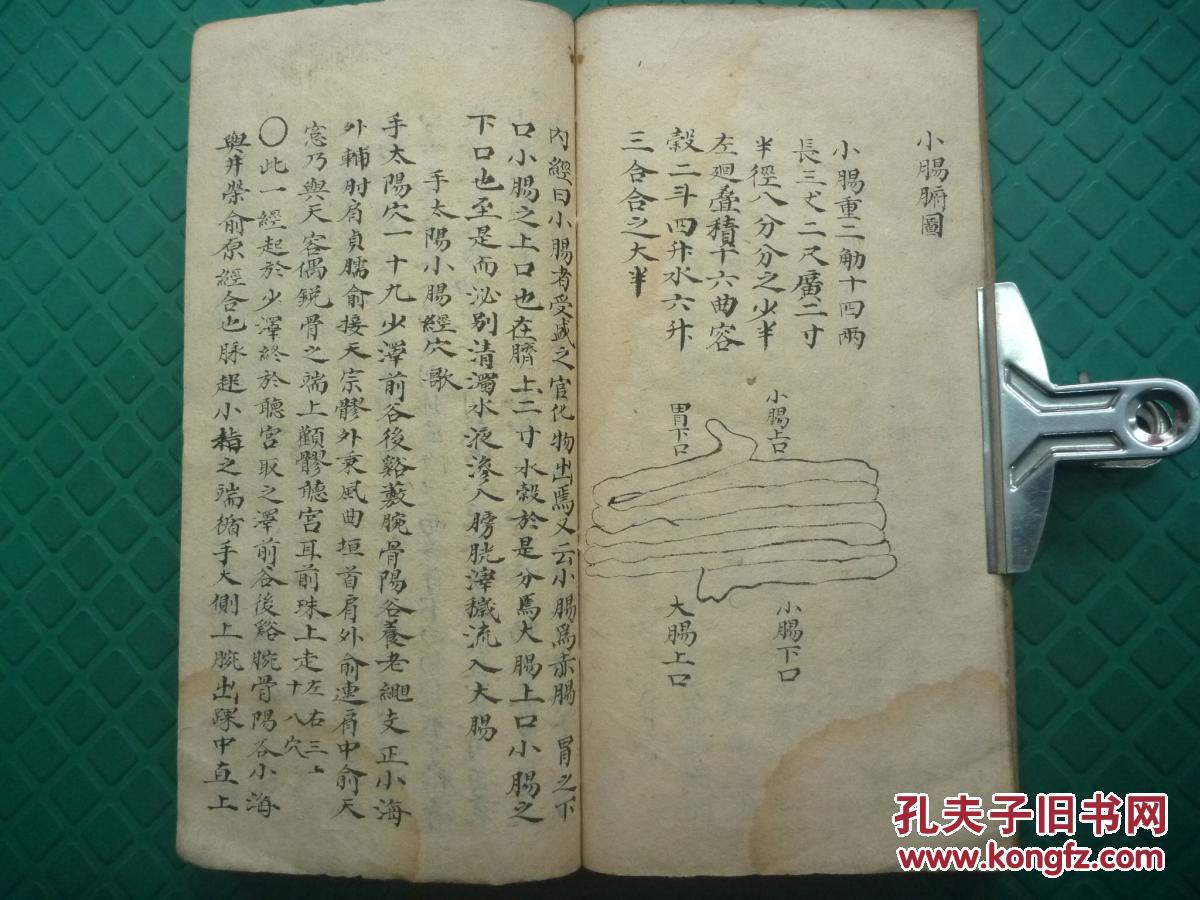 小腸腑圖
小腸重二觔十四兩
長三丈二尺廣二寸
半徑八分分之少半
左廻疊積十六曲容
穀二斗四升水六升
三合合之大半
小腸上口
胃下口
小腸下口
大腸上口
內經曰小腸者受盛之官化物出焉又云小腸爲赤腸 胃之下
口小腸之上口也在臍上二寸水穀於是分焉大腸上口小腸之
下口也至是而泌別清濁水液滲入膀胱滓穢流入大腸
手太陽小腸經穴歌
手太陽穴一十九少澤前谷後谿藪腕骨陽谷養老繩支正小海
外輔肘肩貞臑俞接天宗髎外秉風曲垣首肩外俞連肩中俞天
窓乃與天容偶銳骨之端上顴髎聽宮耳前珠上走左右三十八穴
〇此一經起於少澤終於聽宮取之澤前谷後谿腕骨陽谷小海
與井滎俞原經合也脉起小指之端循手大側上腕出踝中直上
孔夫子旧书网
www.kongfz.com